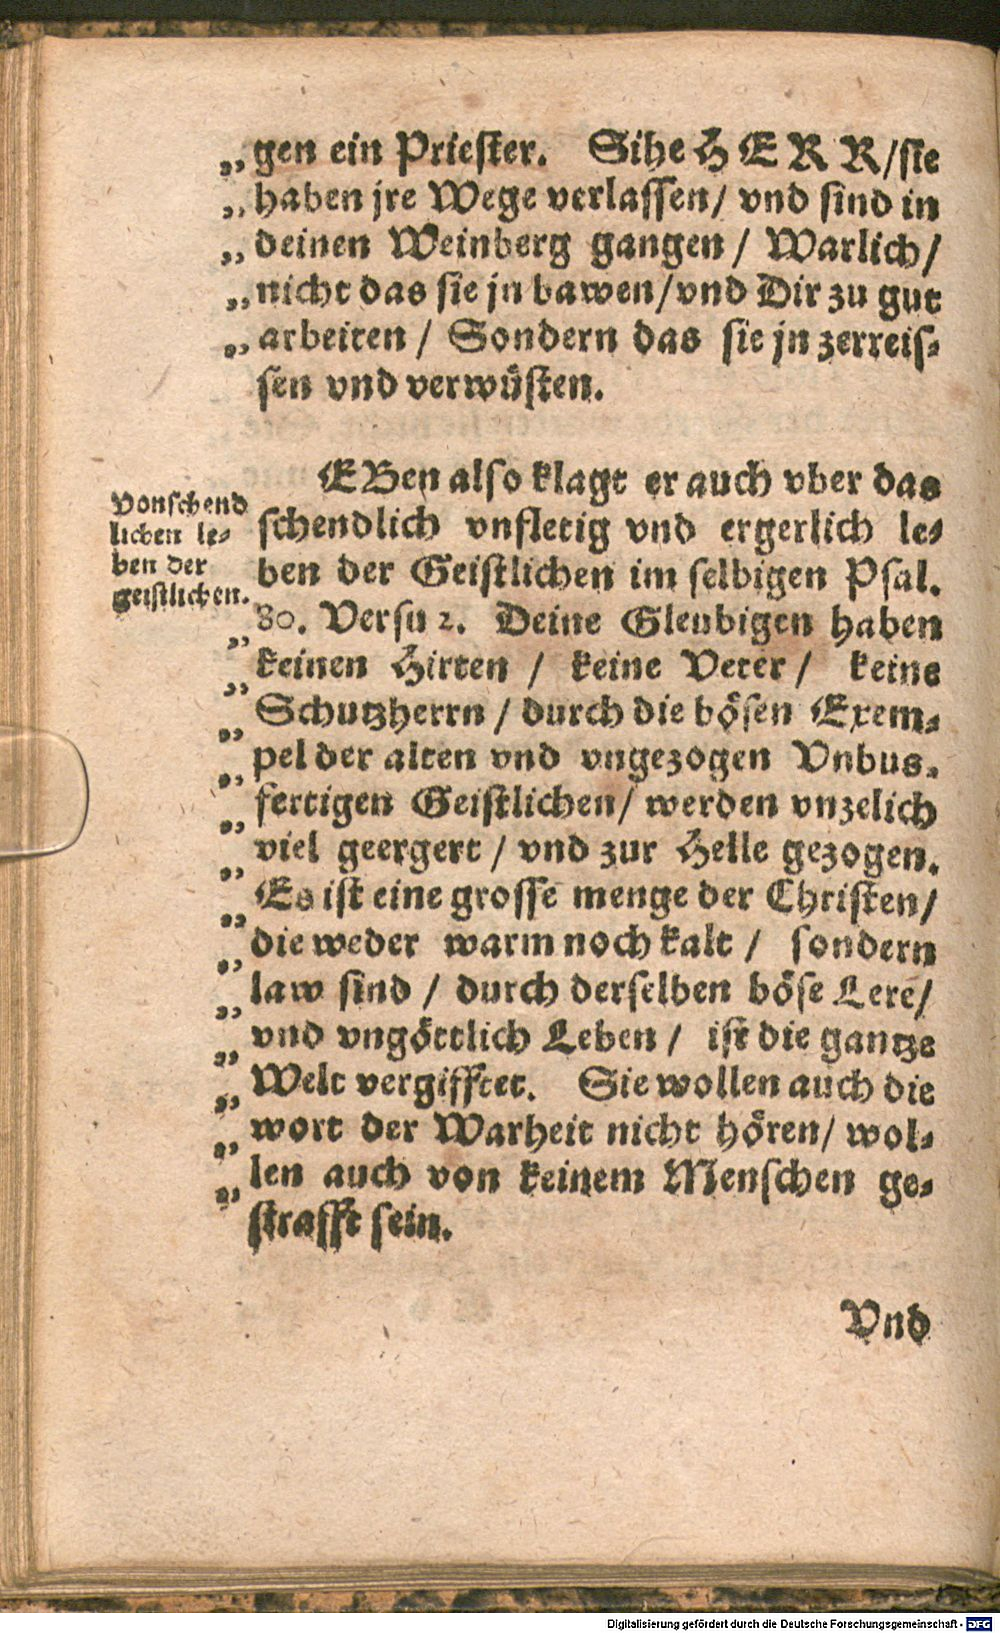 „gen ein Priester. Sihe HERR/sie
„haben jre Wege verlassen/ vnd sind in
„deinen Weinberg gangen / Warlich/
„nicht das sie jn bawen/vnd Dir zu gut
„arbeiten / Sondern das sie jn zerreis-
sen vnd verwüsten.
EBen also klagt er auch vber das
schendlich vnfletig vnd ergerlich le-
ben der Geistlichen im selbigen Psal.
80. Versu 2. Deine Gleubigen haben
„keinen Hirten / keine Veter / keine
„Schutzherrn / durch die bösen Exem-
„pel der alten vnd vngezogen Vnbus-
„fertigen Geistlichen/ werden vnzelich
„viel geergert / vnd zur Helle gezogen.
„Es ist eine grosse menge der Christen/
„die weder warm noch kalt / sondern
„law sind / durch derselben böse Lere/
„vnd vngöttlich Leben / ist die gantze
„Welt vergifftet. Sie wollen auch die
„wort der Warheit nicht hören/ wol-
„len auch von keinem Menschen ge-
„strafft sein.
Vonschend
lichen le-
ben der
geistlichen.
Vnd
Digitalisierung gefördert durch die Deutsche Forschungsgemeinschaft - DFG